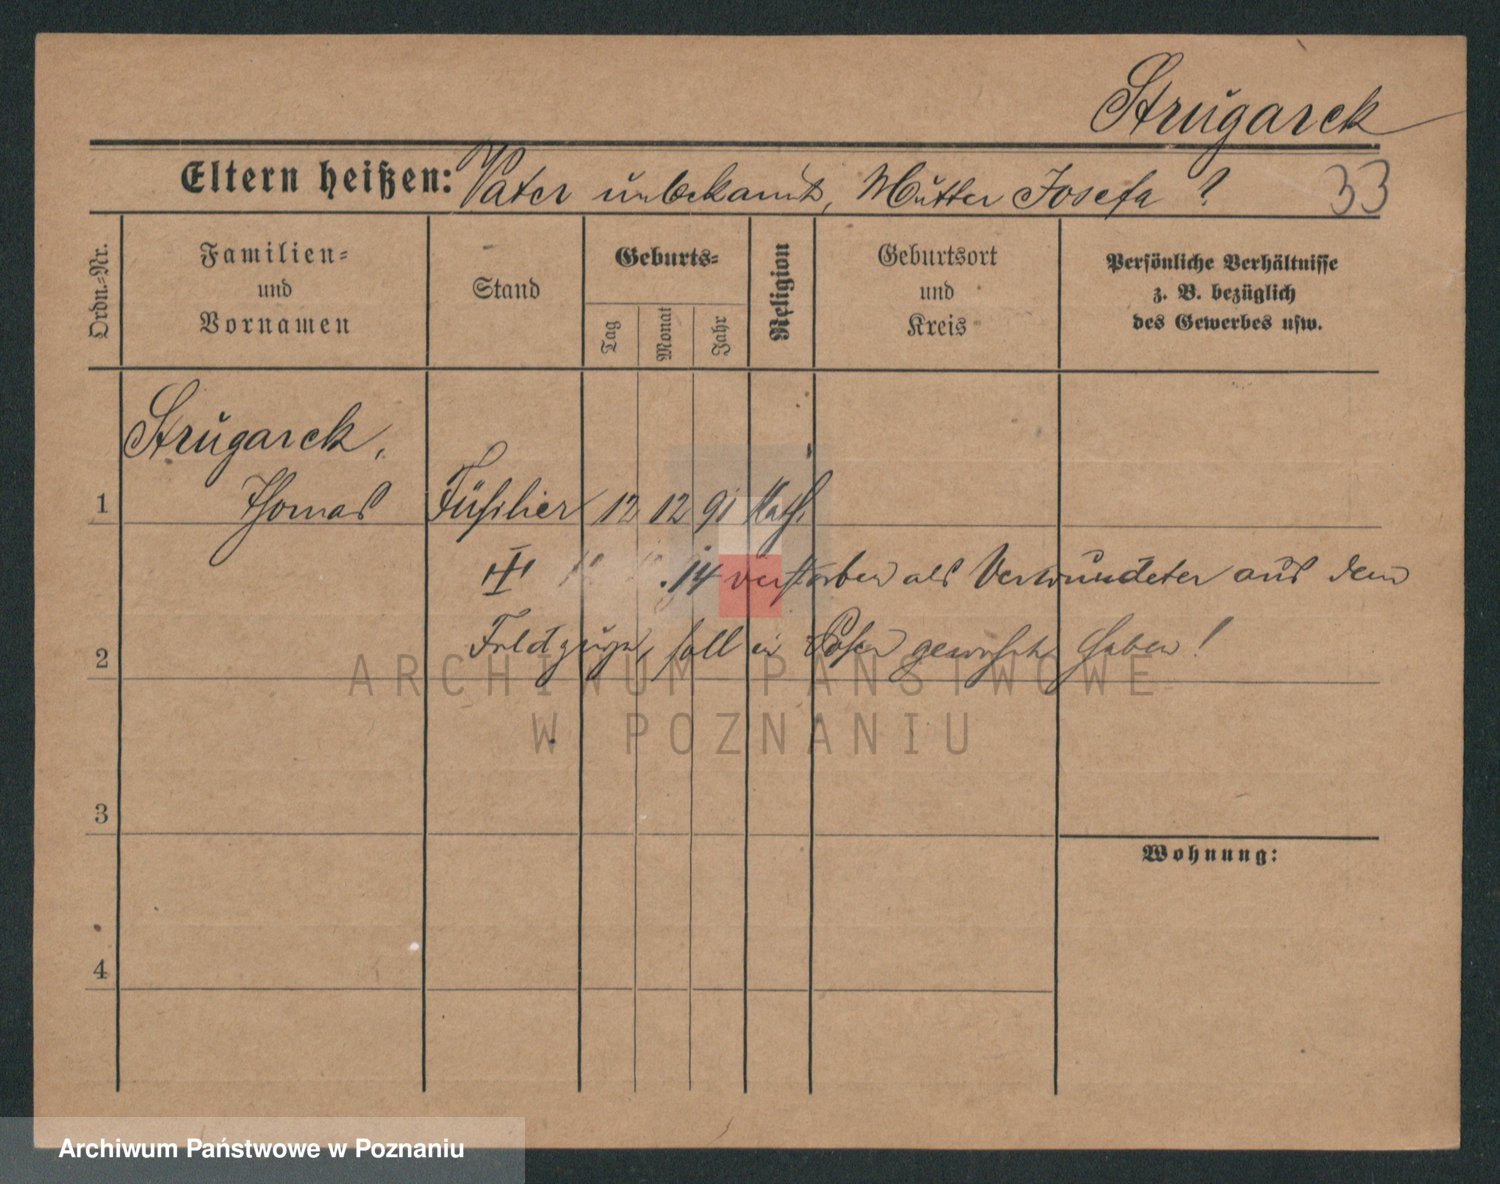 Strugarek
Eltern heißen: Vater unbekannt, Mutter Josefa ?
33
Ordn.-Nr.
Familien-
und
Vornamen
Stand
Geburts-
Tag
Monat
Jahr
Religion
Geburtsort
und
Kreis
Persönliche Verhältnisse
z. B. bezüglich
des Gewerbes usw.
Strugarek,
1 Thomas Füsilier 12 12 91 kath.
14 verstorben als Verwundeter aus dem
2 Feldzuge, soll in Posen gewohnt haben!
ARCHIWUM PAŃSTWOWE
W POZNANIU
3
Wohnung:
4
Archiwum Państwowe w Poznaniu